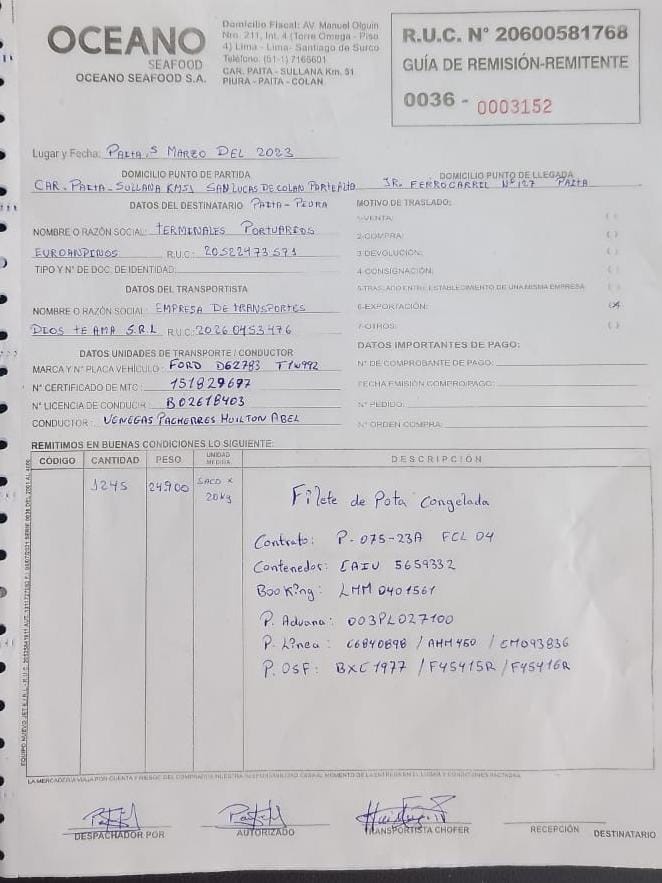 OCEANO
SEAFOOD
OCEANO SEAFOOD S.A.
Domicilio Fiscal: AV. Manuel Olguin
Nro. 211, Int. 4 (Torre Omega - Piso
4) Lima - Lima- Santiago de Surco
Teléfono: (51-1) 7166601
CAR. PAITA - SULLANA Km. 51
PIURA - PAITA - COLAN
R.U.C. N° 20600581768
GUÍA DE REMISIÓN-REMITENTE
0036 - 0003152
Lugar y Fecha: PAITA, 5 MARZO DEL 2023
DOMICILIO PUNTO DE PARTIDA
CAR. PAITA - SULLANA KM51 SAN LUCAS DE COLAN PORTE ALTO
DOMICILIO PUNTO DE LLEGADA
JR. FERROCARRIL N°127 PAITA
DATOS DEL DESTINATARIO PAITA-PIURA
NOMBRE O RAZÓN SOCIAL: TERMINALES PORTUARIOS
EUROANDINOS R.U.C.: 20522473571
TIPO Y N° DE DOC. DE IDENTIDAD:
DATOS DEL TRANSPORTISTA
NOMBRE O RAZÓN SOCIAL: EMPRESA DE TRANSPORTES
DIOS TE AMA S.R.L R.U.C: 20260453476
DATOS UNIDADES DE TRANSPORTE / CONDUCTOR
MARCA Y N° PLACA VEHÍCULO: FORD D6Z783 T1W992
N° CERTIFICADO DE MTC: 151829697
N° LICENCIA DE CONDUCIR: B02618403
CONDUCTOR: VENEGAS PACHERRES HUILTON ABEL
MOTIVO DE TRASLADO:
1-VENTA: ( )
2-COMPRA: ( )
3-DEVOLUCIÓN: ( )
4-CONSIGNACIÓN: ( )
5-TRASLADO ENTRE ESTABLECIMIENTO DE UNA MISMA EMPRESA ( )
6-EXPORTACIÓN: (X)
7-OTROS: ( )
DATOS IMPORTANTES DE PAGO:
N° DE COMPROBANTE DE PAGO:
FECHA EMISIÓN COMPRO/PAGO:
N° PEDIDO:
N° ORDEN COMPRA:
REMITIMOS EN BUENAS CONDICIONES LO SIGUIENTE:
CÓDIGO CANTIDAD PESO UNIDAD MEDIDA DESCRIPCIÓN
1245 24900 SACO X 20kg Filete de Pota Congelada
Contrato: P-075-23A FCL 04
Contenedor: CAIU 5659332
Booking: LMM0401561
P. Aduana: 003PL027100
P. Línea: C6840898 / AHM450 / CM093836
P. OSF: BXC1977 / F45415R / F45416R
DESPACHADOR POR
AUTORIZADO
TRANSPORTISTA CHOFER
RECEPCIÓN
DESTINATARIO